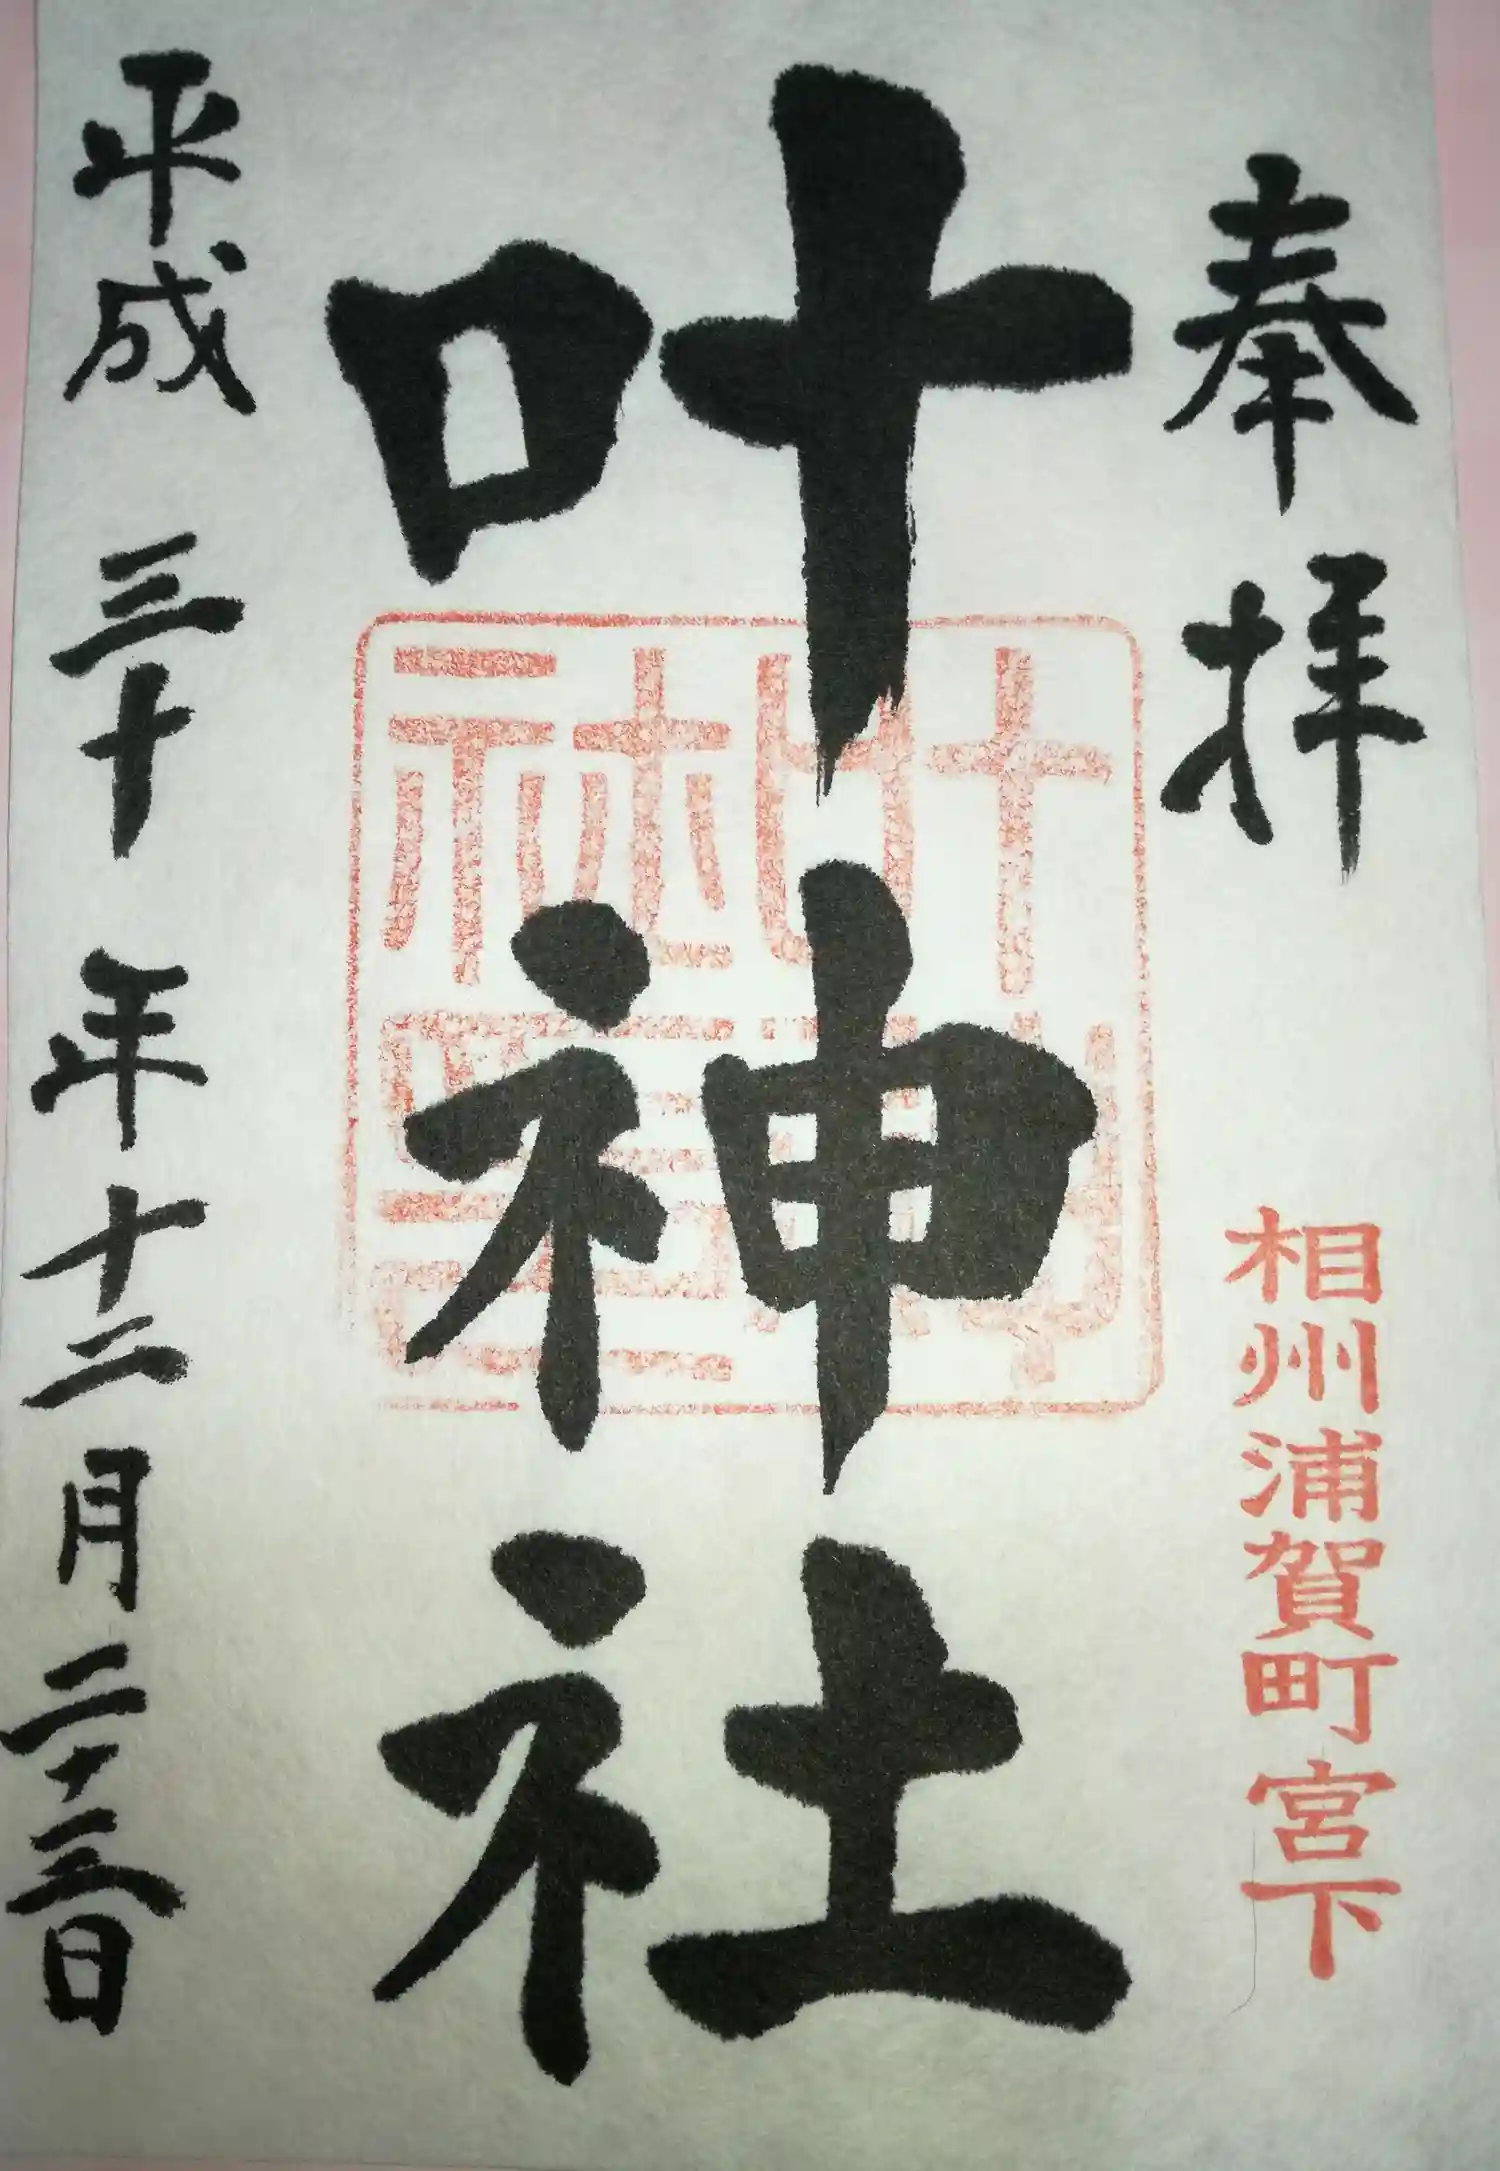 奉拝
相州浦賀町宮下
叶神社
叶神社
平成三十年十二月二十三日